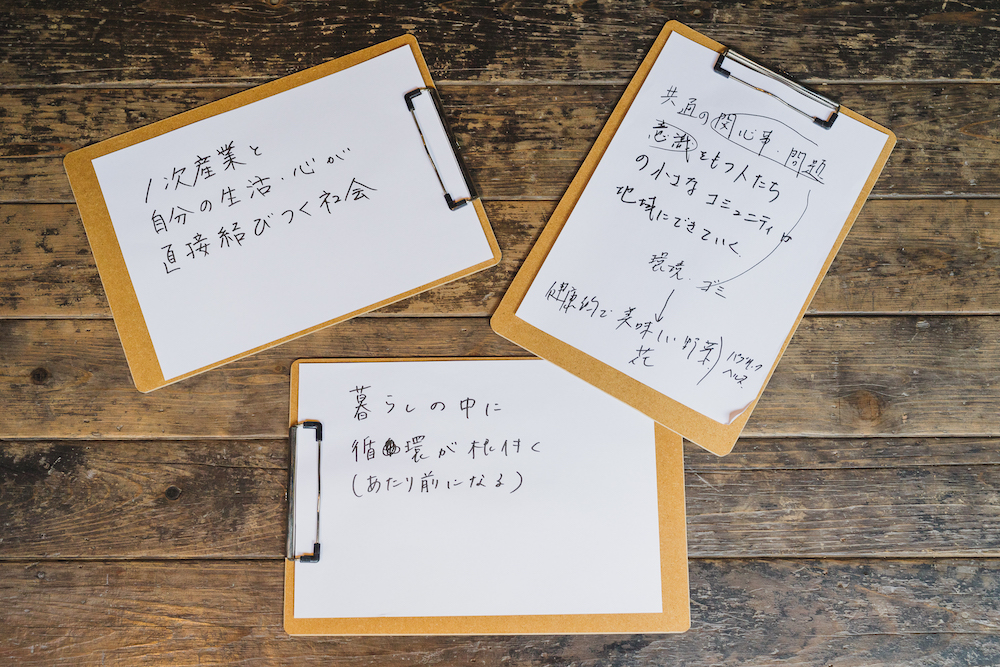 1次産業と
自分の生活・心が
直接結びつく社会
共通の関心事・問題
意識をもつ人たち
の小さなコミュニティが
地域にできていく
環境・ゴミ
健康的で美味しい野菜
花
パブリック
ヘルス
暮らしの中に
循環が根付く
(あたり前になる)